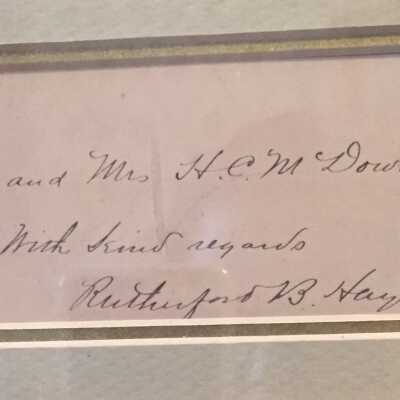 and Mrs H. C. McDow
With kind regards
Rutherford B. Hay